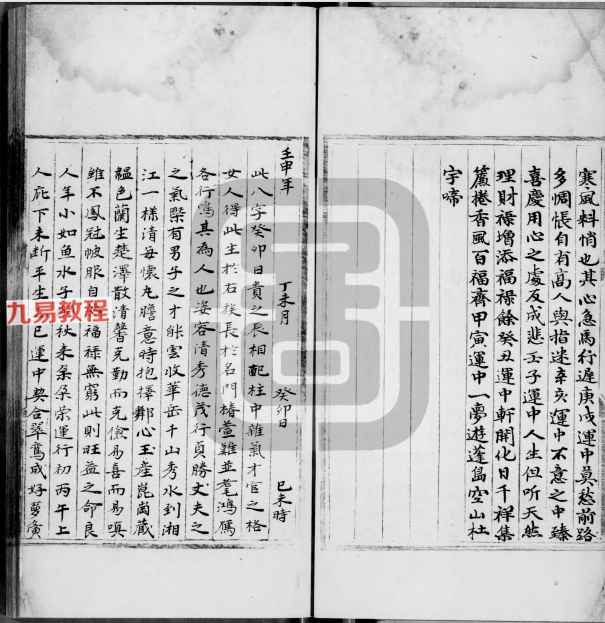 寒風料悄也其心急馬行遲庚戌運中莫愁前路
多惆悵自有高人與指迷辛亥運中不意之中臻
喜慶用心之處反成悲壬子運中人生但听天然
理財祿增添福祿餘癸丑運中軒開化日千祥集
簾捲香風百福齊甲寅運中一夢遊蓬島空山杜
宇啼
壬申年 丁未月 癸卯日 巳未時
此八字癸卯日貴之辰相配柱中雜氣才官之格
女人得此主於右族長於名門椿萱雖並耄鴻鴈
各行寫其為人也姿容清秀德茂行貞勝丈夫之
之氣槩有男子之才能雲收華岳千山秀水到湘
江一樣清每懷丸膽意時抱擇鄰心玉產崑崗藏
韞色蘭生楚澤散清馨克勤而克儉易喜而易嗔
雖不鳳冠帔服自 福祿無窮此則旺益之命良
人年小如魚水子 秋來朵朵荣運行初丙午上
人庇下未斷平生 巳運中契合翠鸞成好
九易教程